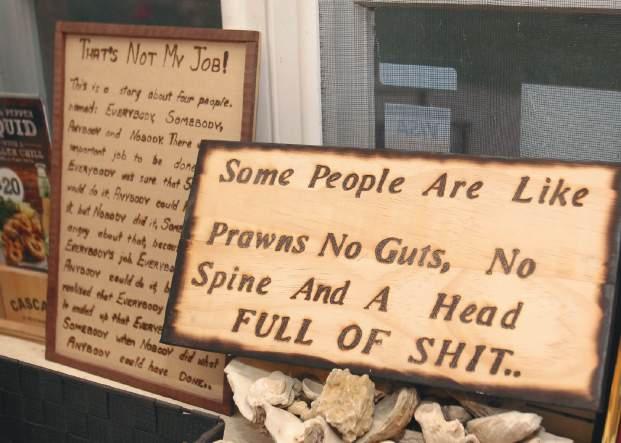 THAT'S NOT MY JOB!
This is a story about four people.
named: EVERYBODY, SOMEBODY,
ANYBODY and NOBODY. There
important job to be done
EVERYBODY was sure that
would do it. ANYBODY could
it, but NOBODY did it,
angry about that, because
EVERYBODY'S job.
ANYBODY could do it,
realised that EVERYBODY
it ended up that
SOMEBODY when NOBODY did what
ANYBODY could have DONE..
Some People Are Like
Prawns No Guts, No
Spine And A Head
FULL OF SHIT..
PEPPER
QUID
CHILL
20
CASCA